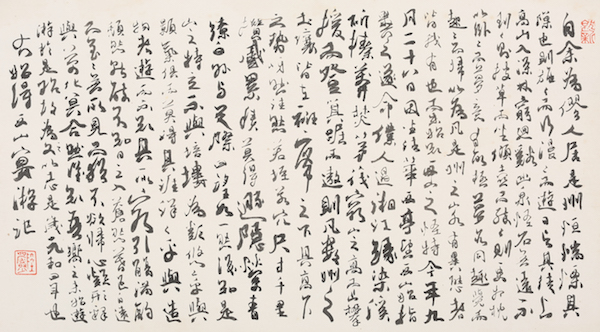 自余為僇人居是州恒惴慄其
隙也則施施而行漫漫而遊日與其徒上
高山入深林窮迴溪幽泉怪石無遠不
到到則披草而坐傾壺而醉醉則更相枕
以臥臥而夢意有所極夢亦同趣覺而
起起而歸以為凡是州之山水有異態者
皆我有也而未始知西山之怪特今年九
月二十八日因坐法華西亭望西山始指
異之遂命僕人過湘江緣染溪
斫榛莽焚茅茷窮山之高而止攀
援而登箕踞而遨則凡數州之
土壤皆在衽席之下其高下
之勢岈然洼然若垤若穴尺寸千里
攢蹙累積莫得遯隱縈青
繚白外與天際四望如一然後知是
山之特立不與培塿為類悠悠乎與
顥氣俱而莫得其涯洋洋乎與造
物者遊而不知其所窮引觴滿酌
頹然就醉不知日之入蒼然暮色自遠
而至至無所見而猶不欲歸心凝形釋
與萬化冥合然後知吾嚮之未始遊
游於是乎始故為之文以志是歲元和四年也
右始得西山宴游記